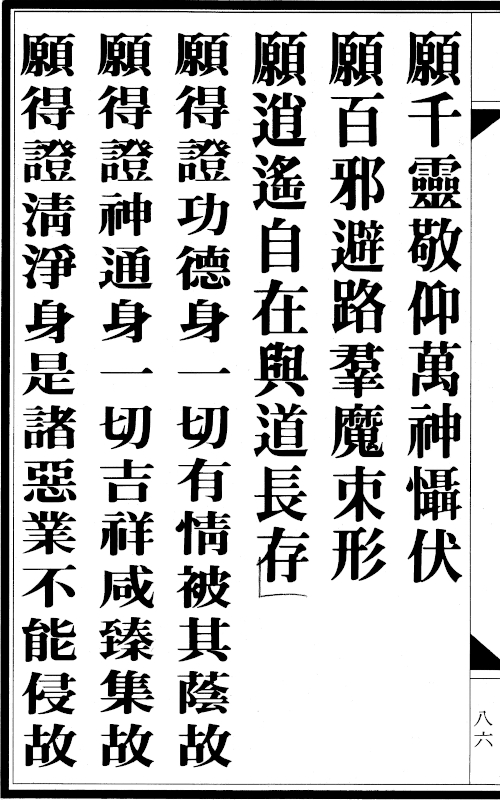 願千靈敬仰萬神懾伏
願百邪避路羣魔束形
願逍遙自在與道長存
願得證功德身一切有情被其蔭故
願得證神通身一切吉祥咸臻集故
願得證淸淨身是諸惡業不能侵故
八六